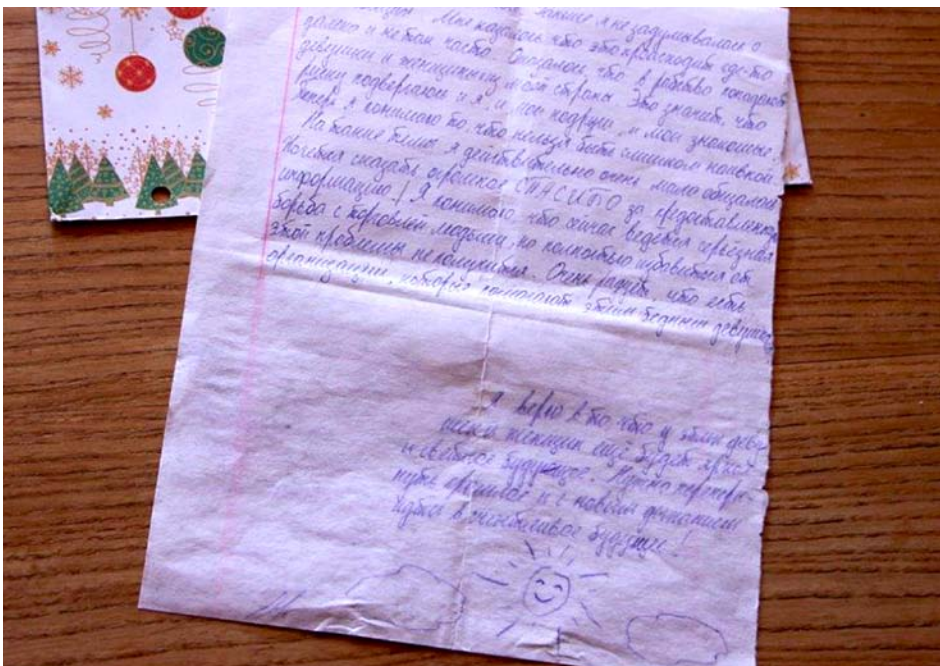 раньше я не задумывалась о
Мне казалось что это происходит где-то
далеко и не так часто. Оказалось, что в рабство попадают
девушки и женщины и моей страны. Это значит, что
риску подвергаюсь и я и мои подруги, и мои знакомые.
Теперь я понимаю то, что нельзя быть слишком наивной.
На такие темы я действительно очень мало общалась.
Хочется сказать огромное СПАСИБО за предоставленную
информацию! Я понимаю что сейчас ведётся серьёзная
борьба с торговлей людьми, но полностью избавиться от
этой проблемы не получится. Очень радует, что есть
организации, которые помогают этим бедным девушкам
Я верю в то что у этих деву-
шек и женщин ещё будет яркое
и светлое будущее. Нужно перечерк-
нуть прошлое и с новым дыханием
в счастливое будущее!